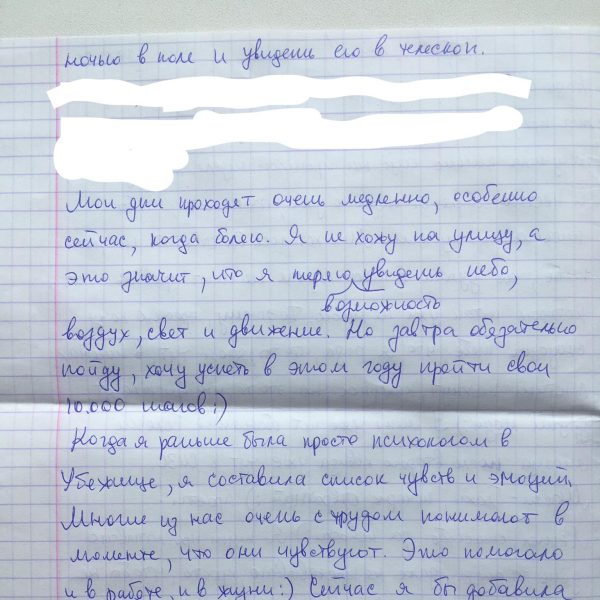 ночью в поле и увидешь его в телескоп.
Мои дни проходят очень медленно, особенно
сейчас, когда болею. Я не хожу на улицу, а
это значит, что я теряю увидешь небо,
возможность
воздух, свет и движение. Но завтра обязательно
пойду, хочу успеть в этом году пройти свои
10.000 шагов:)
Когда я раньше была просто психологом в
Убежище, я составила список чувств и эмоций.
Многие из нас очень с трудом понимают в
моменте, что они чувствуют. Это помогало
и в работе, и в жизни:) Сейчас я бы добавила